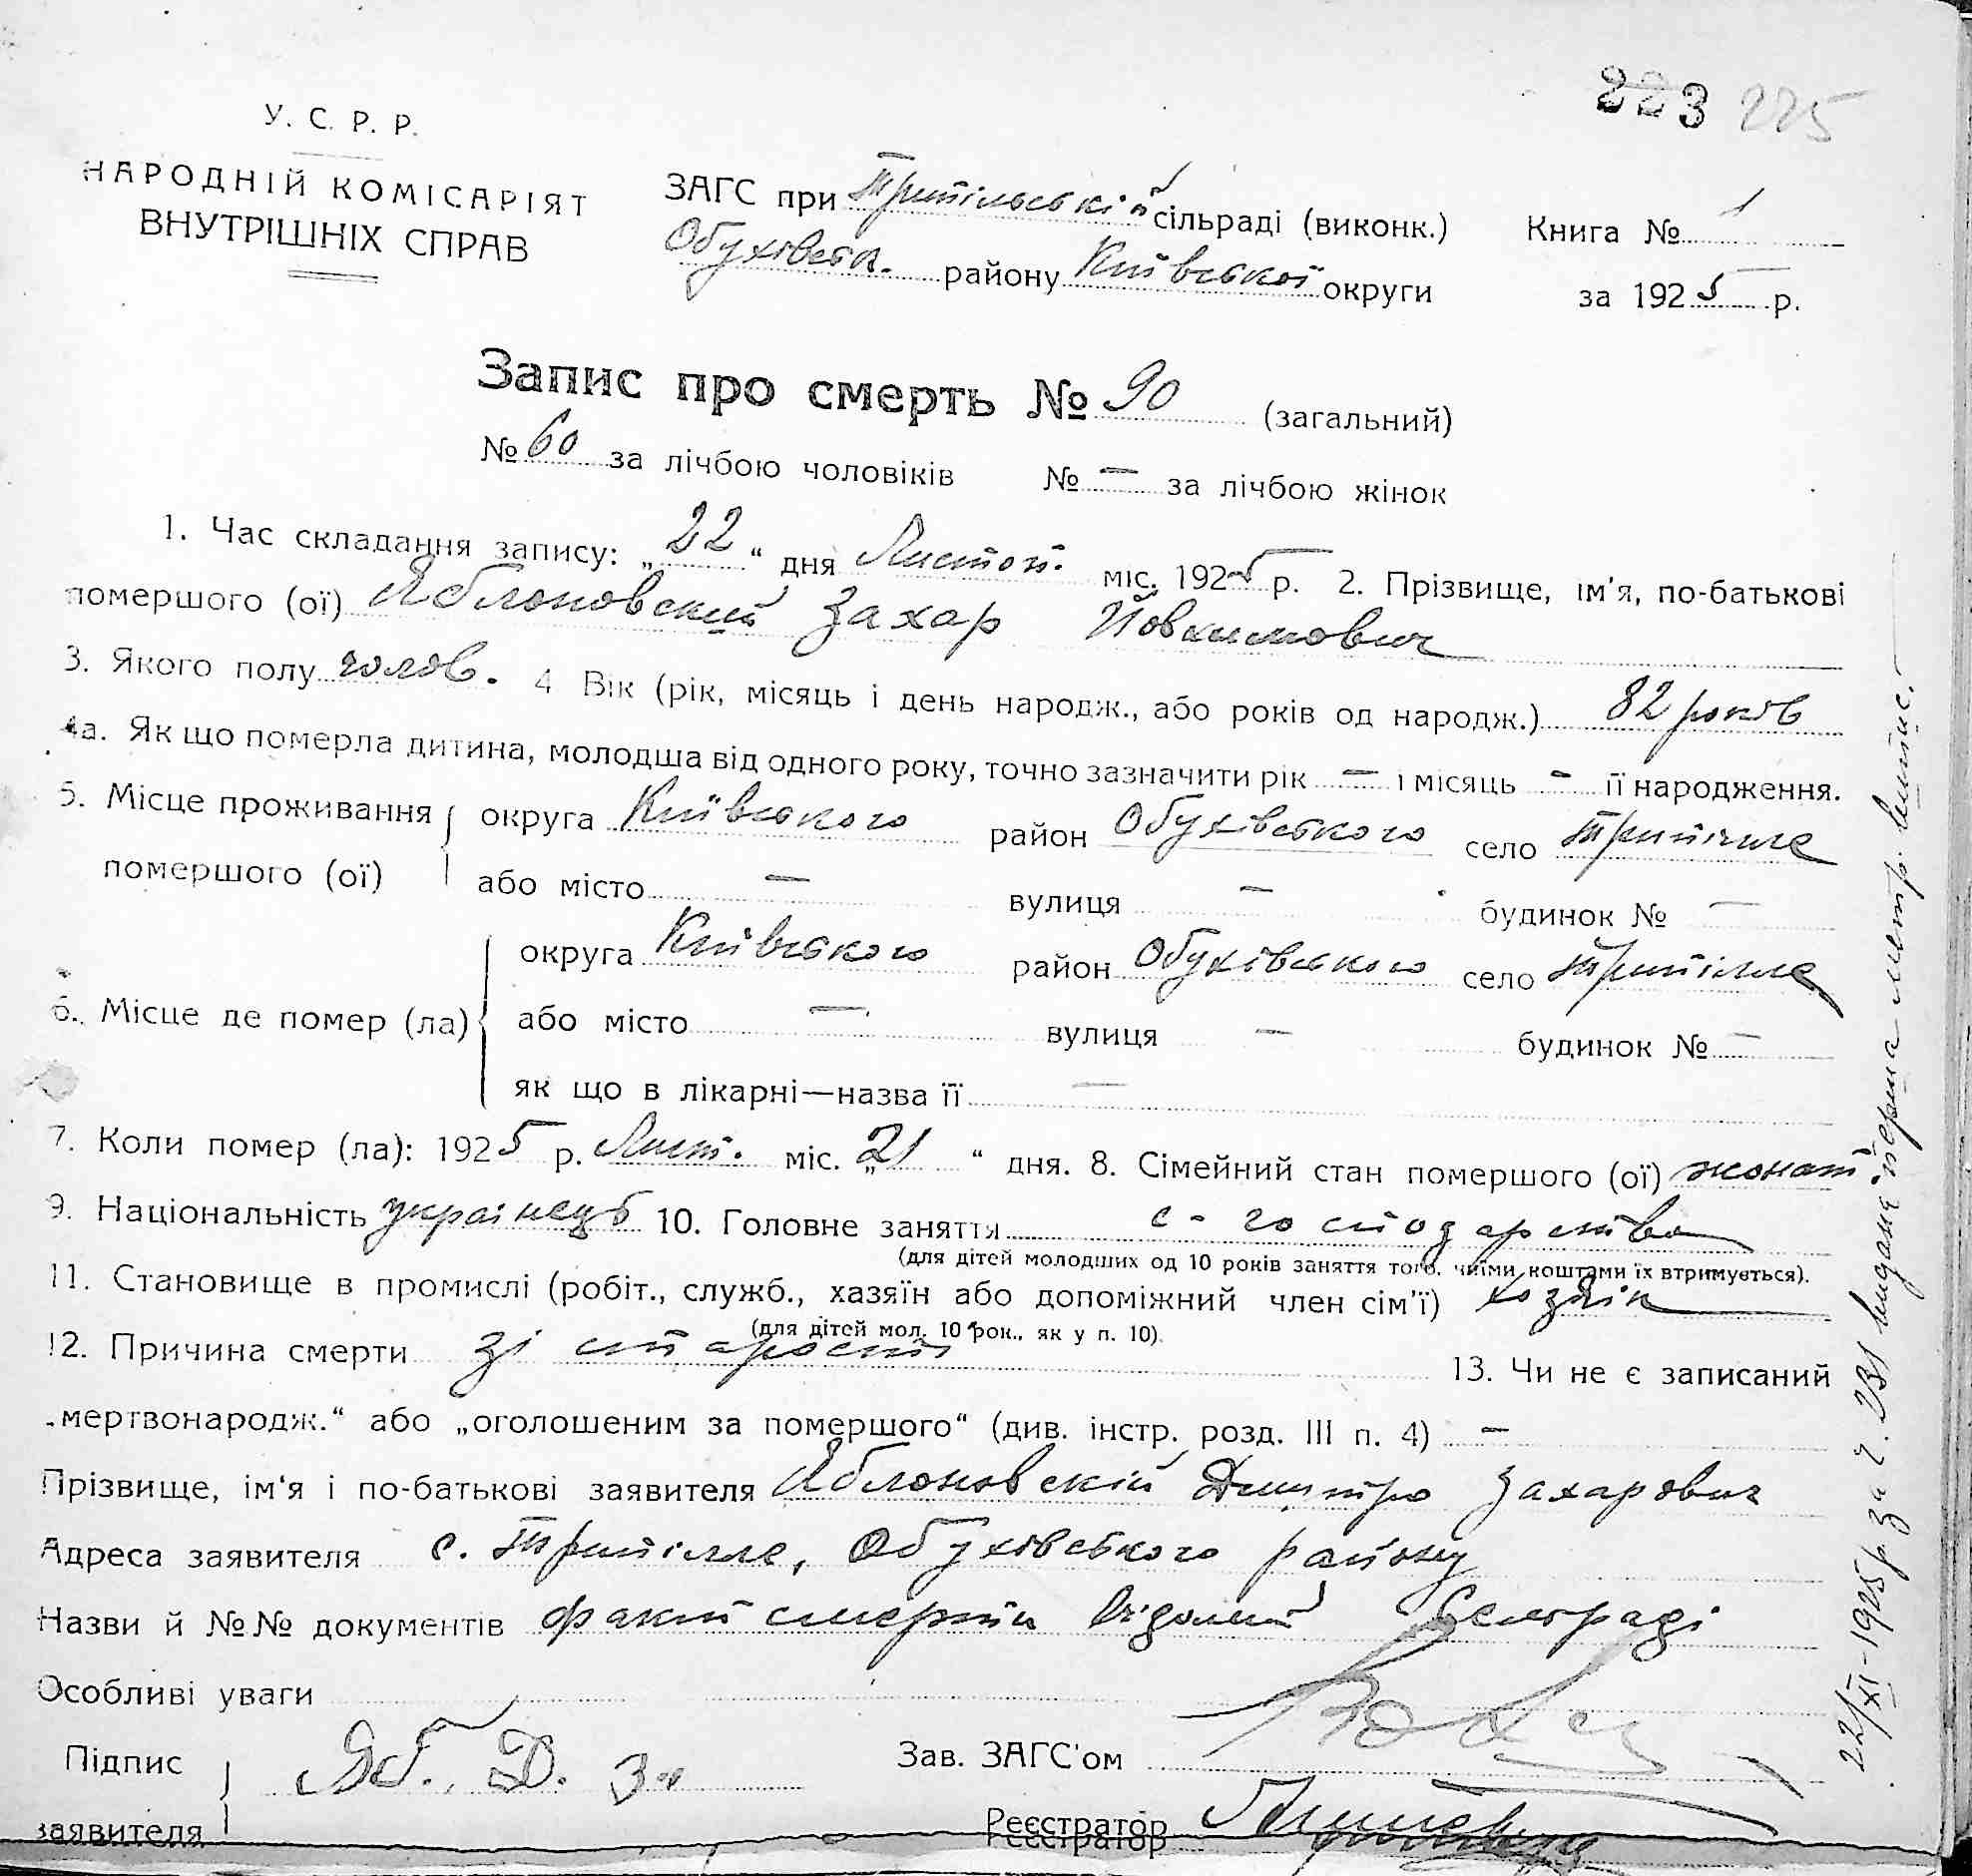 223 225
У. С. Р. Р.
НАРОДНІЙ КОМІСАРІЯТ
ВНУТРІШНІХ СПРАВ
ЗАГС при Трипільській сільраді (виконк.) Книга № 1
Обухівськ. району Київської округи за 1925 р.
Запис про смерть № 90 (загальний)
№ 60 за лічбою чоловіків № — за лічбою жінок
1. Час складання запису: „22“ дня Листоп. міс. 1925 р. 2. Прізвище, ім'я, по-батькові
помершого (ої) Яблоновский Захар Йовкимович
3. Якого полу чолов. 4 Вік (рік, місяць і день народж., або років од народж.) 82 років
4а. Як що померла дитина, молодша від одного року, точно зазначити рік — і місяць - її народження.
5. Місце проживання округа Київського район Обухівського село Трипілле
помершого (ої) або місто — вулиця — будинок № —
округа Київського район Обухівського село Трипілле
6. Місце де помер (ла) або місто — вулиця — будинок № —
як що в лікарні—назва її —
7. Коли помер (ла): 1925 р. Лист. міс. „21“ дня. 8. Сімейний стан помершого (ої) жонат
9. Національність українець 10. Головне заняття с-господарство
(для дітей молодших од 10 років заняття того, чиїми коштами їх втримується).
11. Становище в промислі (робіт., служб., хазяїн або допоміжний член сім'ї) хозяін
(для дітей мол. 10 рок., як у п. 10).
12. Причина смерти зі старости 13. Чи не є записаний
„мертвонародж.“ або „оголошеним за помершого“ (див. інстр. розд. III п. 4) —
Прізвище, ім'я і по-батькові заявителя Яблоновскій Дмитро Захарович
Адреса заявителя с. Трипілле, Обухівського району
Назви й №№ документів факт смерти відомий Сельраді
Особливі уваги
Підпис
заявителя Яб. Д. З.
Зав. ЗАГС'ом
Реєстратор
22/XI-1925 р. за ч. 231 видана перша метр. випис.